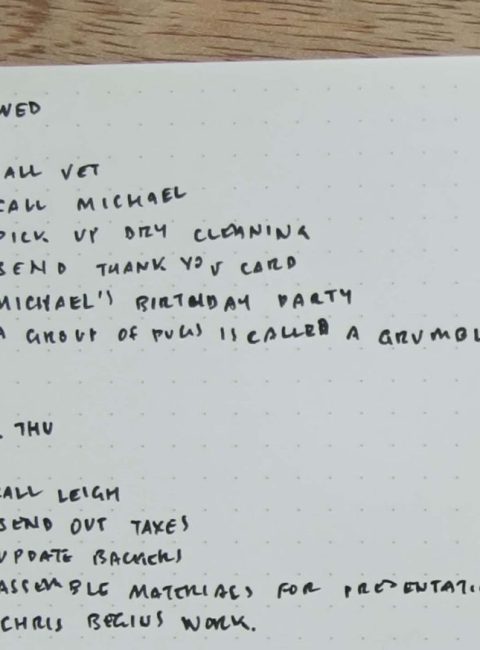 WED
ALL VET
CALL MICHAEL
PICK UP DRY CLEANING
SEND THANK YOU CARD
MICHAEL'S BIRTHDAY PARTY
A GROUP OF PUGS IS CALLED A GRUMBL
. THU
CALL LEIGH
SEND OUT TAXES
UPDATE BACKERS
ASSEMBLE MATERIALS FOR PRESENTATI
CHRIS BEGINS WORK.